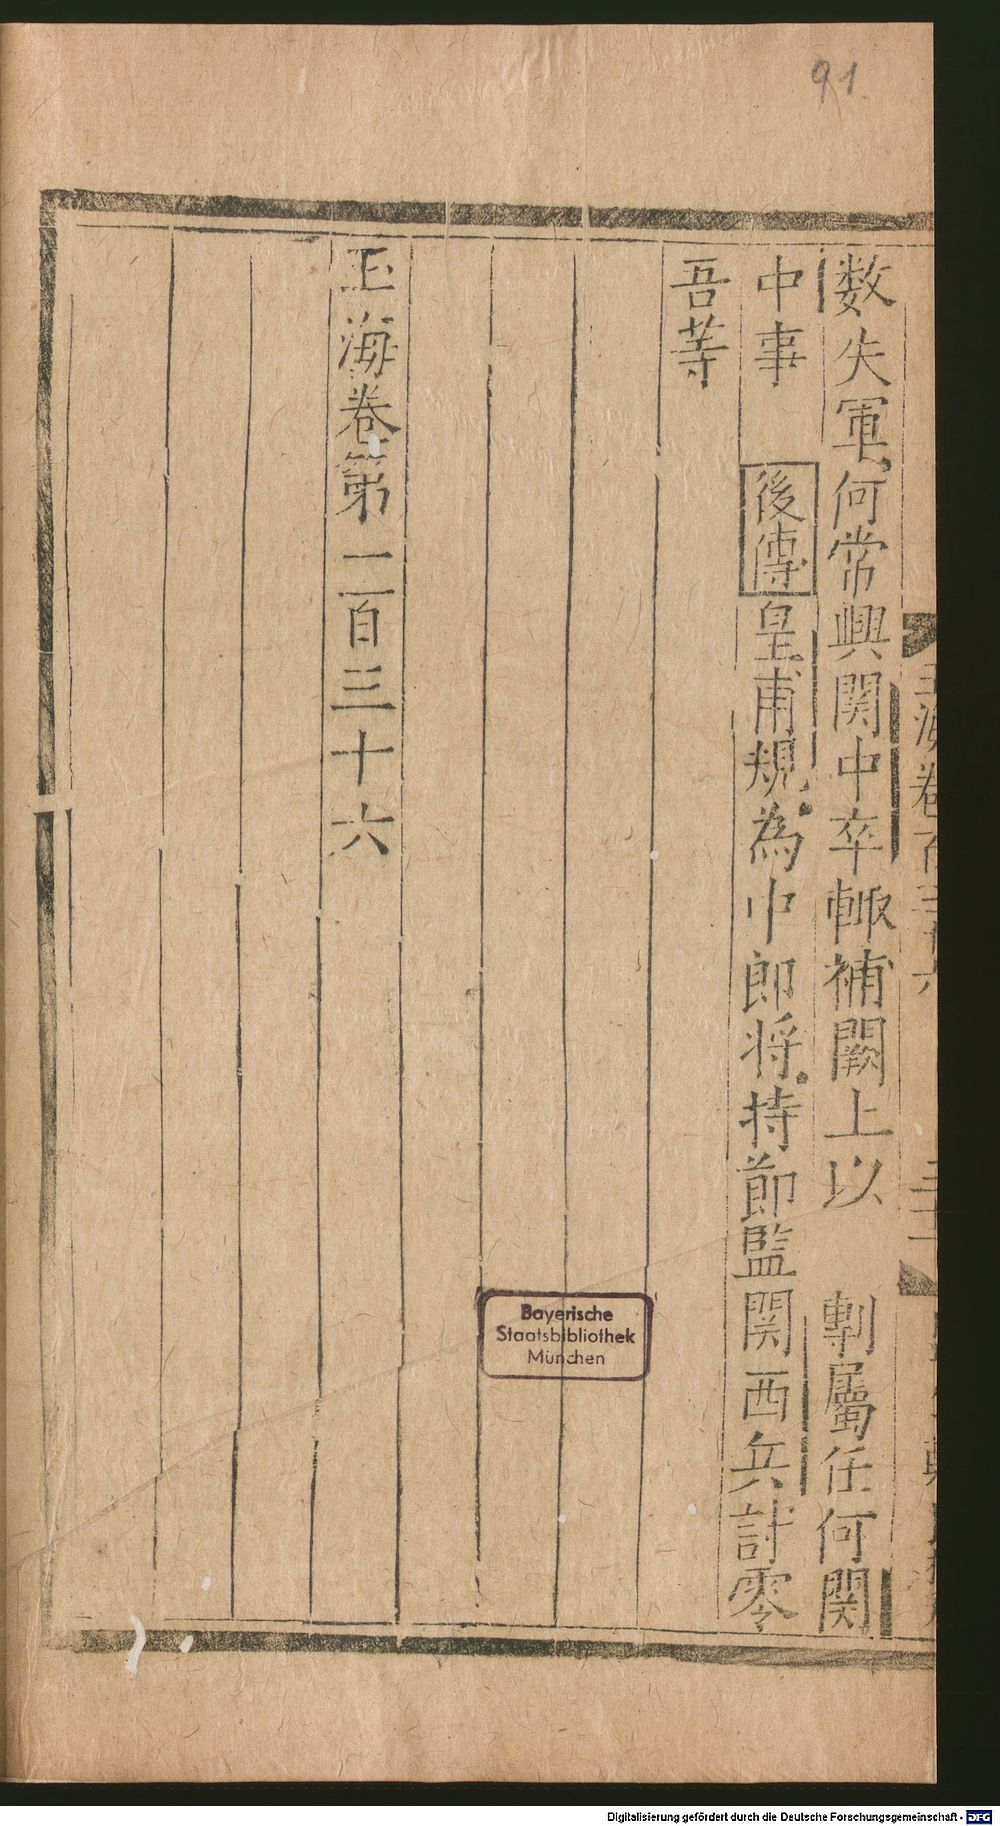 91
数失軍何常興関中卒輙補闕上以 剸屬任何関
中事 後傳皇甫規為中郎将持節監関西兵討零
吾等
玉海卷第一百三十六
玉海卷百三十六
Bayerische
Staatsbibliothek
München
Digitalisierung gefördert durch die Deutsche Forschungsgemeinschaft - DFG